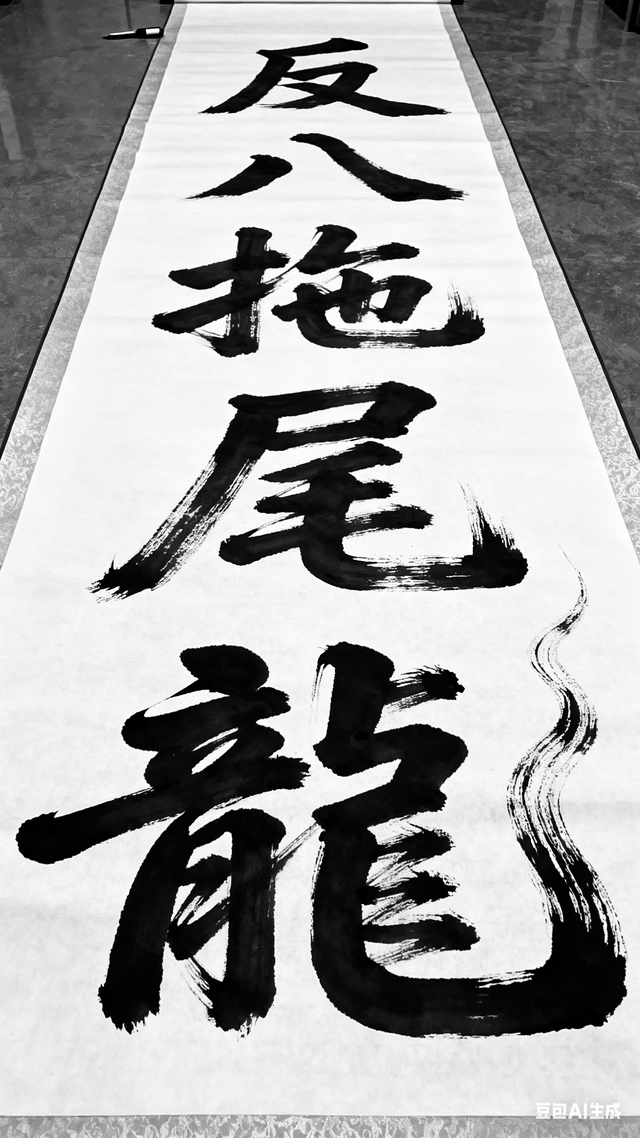 反八拖尾龍
豆包AI生成